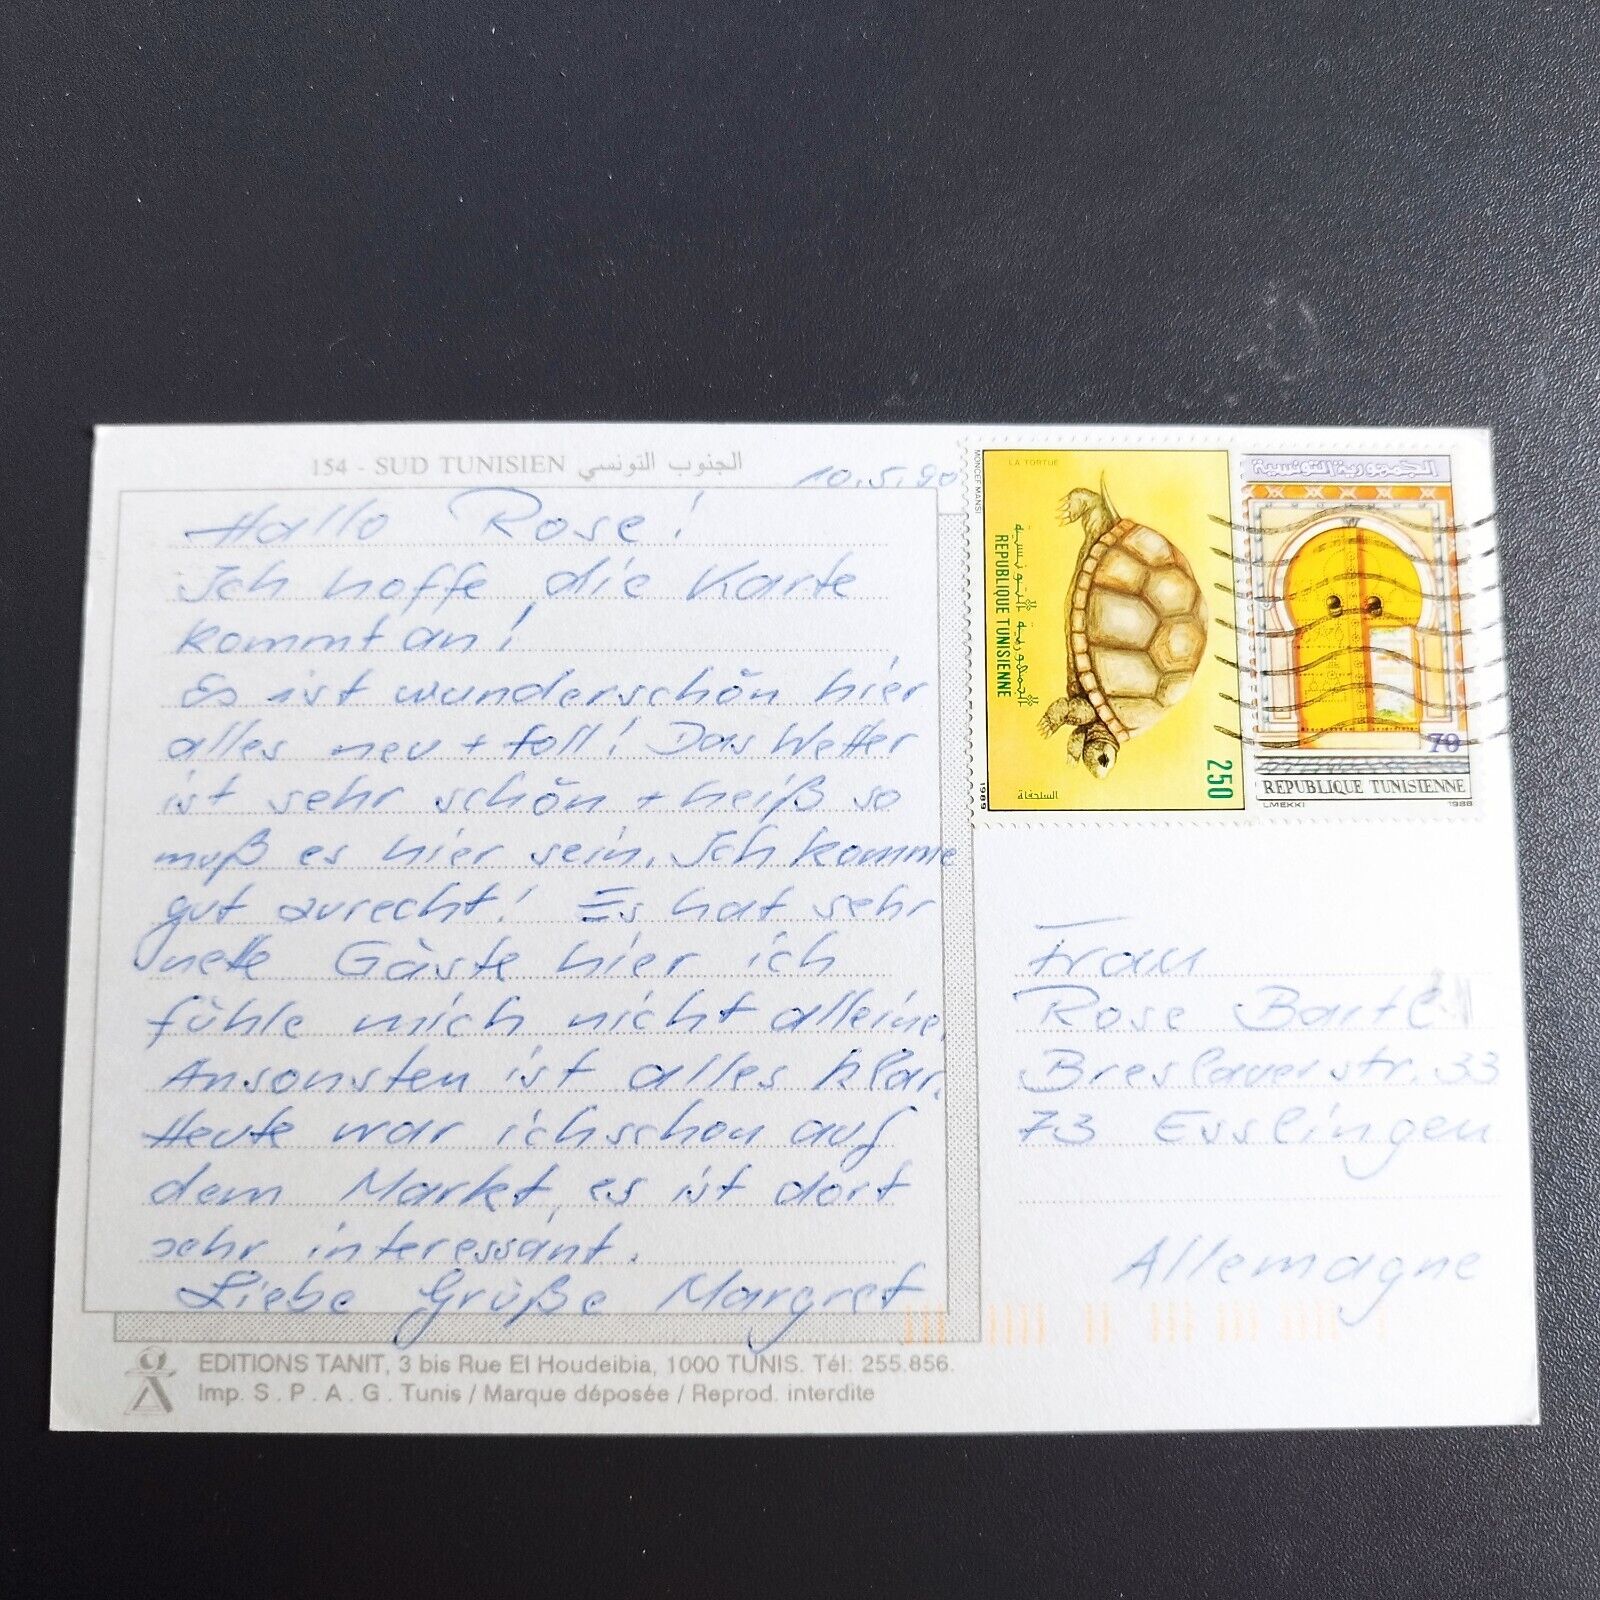 154 - SUD TUNISIEN الجنوب التونسي
10.5.90
Hallo Rose!
Ich hoffe die Karte
kommt an!
Es ist wunderschön hier
alles neu + toll! Das Wetter
ist sehr schön + heiß so
muß es hier sein. Ich komme
gut zurecht! Es hat sehr
nette Gäste hier ich
fühle mich nicht alleine.
Ansonsten ist alles klar.
Heute war ich schon auf
dem Markt, es ist dort
sehr interessant.
Liebe Grüße Margret
EDITIONS TANIT, 3 bis Rue El Houdeibia, 1000 TUNIS. Tél: 255.856.
Imp. S.P.A.G. Tunis / Marque déposée / Reprod. interdite
LA TORTUE
MONCEF MANSI
الجمهورية التونسية
REPUBLIQUE TUNISIENNE
250
السلحفاة
1989
الجمهورية التونسية
70
REPUBLIQUE TUNISIENNE
LMEKKI 1988
Frau
Rose
Breslauerstr. 33
73 Esslingen
Allemagne